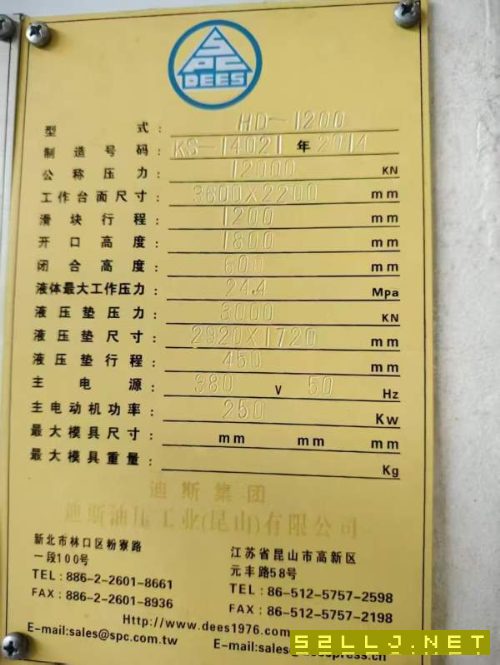 SPC
DEES
型式： HD-1200
制造号码： KS-14021 年 2014
公称压力： 12000 KN
工作台面尺寸： 3600X2200 mm
滑块行程： 1200 mm
开口高度： 1800 mm
闭合高度： 600 mm
液体最大工作压力： 24.4 Mpa
液压垫压力： 3000 KN
液压垫尺寸： 2920X1720 mm
液压垫行程： 450 mm
主电源： 380 V 50 Hz
主电动机功率： 250 Kw
最大模具尺寸： mm mm mm
最大模具重量： Kg
迪斯集团
迪斯油压工业(昆山)有限公司
新北市林口区粉寮路
一段100号
TEL：886-2-2601-8661
FAX：886-2-2601-8936
江苏省昆山市高新区
元丰路58号
TEL：86-512-5757-2598
FAX：86-512-5757-2198
Http://www.dees1976.com
E-mail:sales@spc.com.tw
E-mail:sales@
press.cn
52LLJ.NET